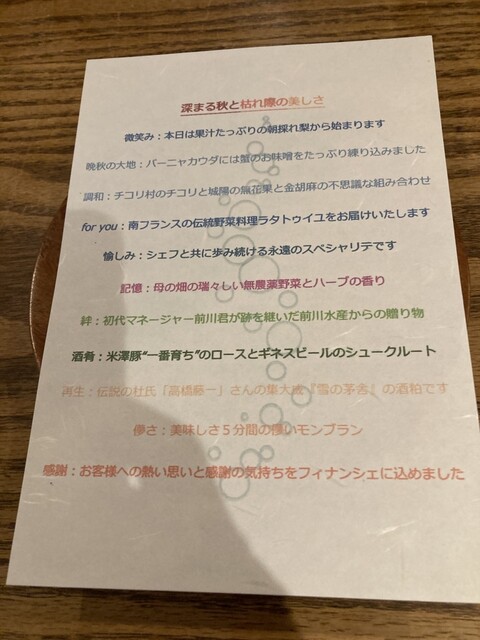 深まる秋と枯れ際の美しさ
微笑み：本日は果汁たっぷりの朝採れ梨から始まります
晩秋の大地：バーニャカウダには蟹のお味噌をたっぷり練り込みました
調和：チコリ村のチコリと城陽の無花果と金胡麻の不思議な組み合わせ
for you：南フランスの伝統野菜料理ラタトゥイユをお届けいたします
愉しみ：シェフと共に歩み続ける永遠のスペシャリテです
記憶：母の畑の瑞々しい無農薬野菜とハーブの香り
絆：初代マネージャー前川君が跡を継いだ前川水産からの贈り物
酒肴：米澤豚“一番育ち”のロースとギネスビールのシュークルート
再生：伝説の杜氏「高橋藤一」さんの集大成『雪の茅舎』の酒粕です
儚さ：美味しさ５分間の儚いモンブラン
感謝：お客様への熱い思いと感謝の気持ちをフィナンシェに込めました